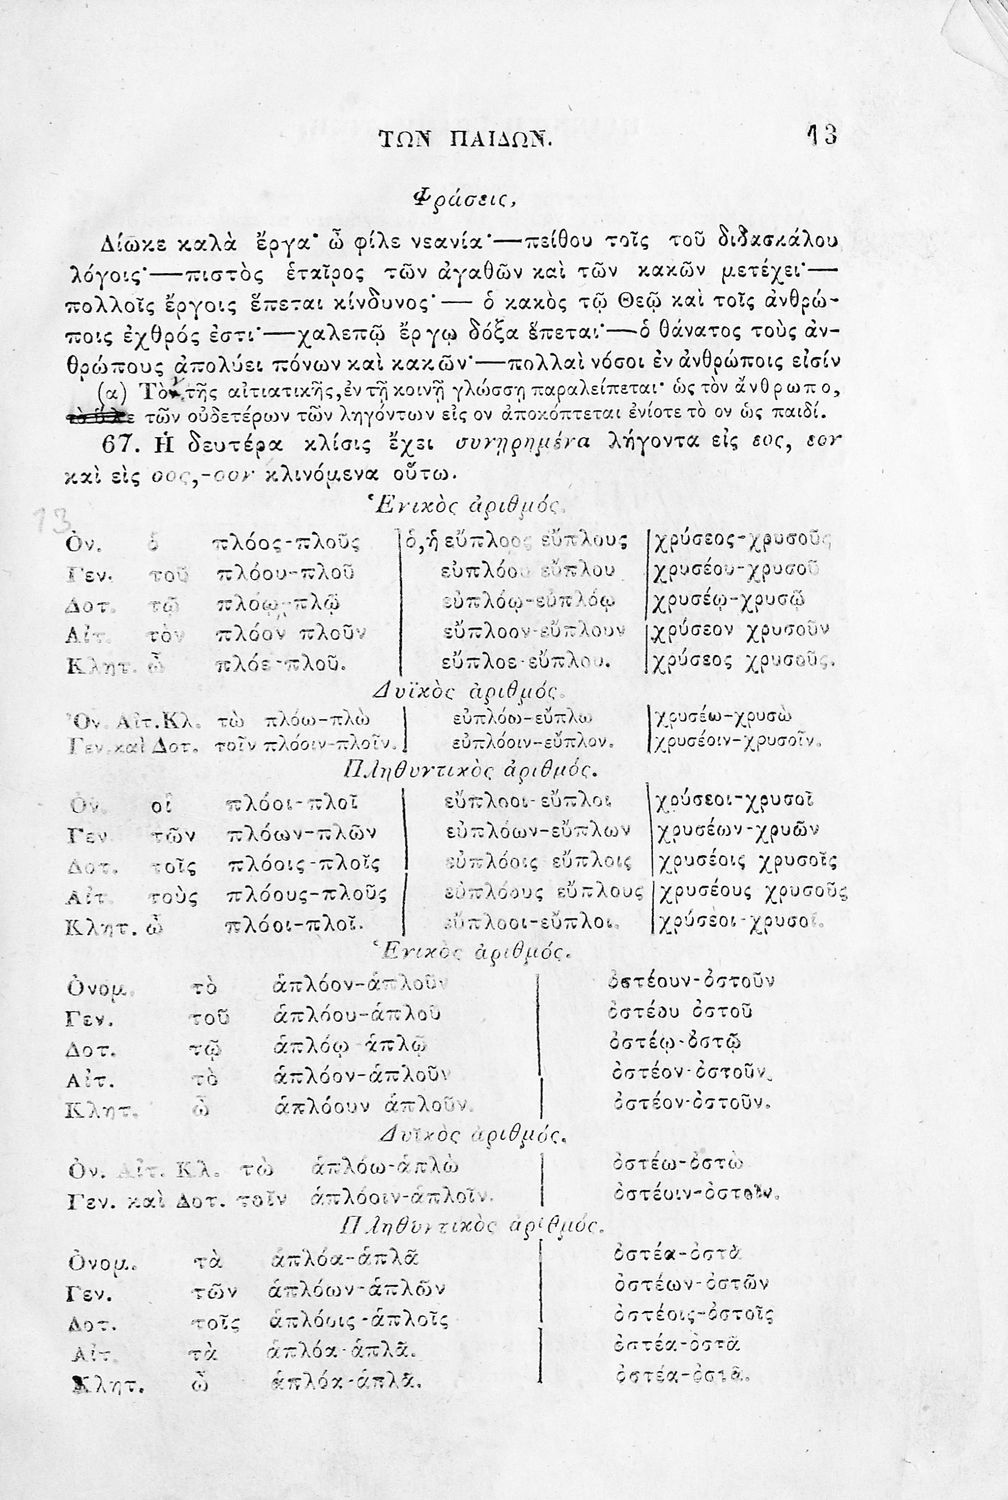 ΤΩΝ ΠΑΙΔΩΝ. 13
Φράσεις,
Δίωκε καλὰ ἔργα· ὦ φίλε νεανία·—πείθου τοῖς τοῦ διδασκάλου
λόγοις·—πιστὸς ἑταῖρος τῶν ἀγαθῶν καὶ τῶν κακῶν μετέχει·—
πολλοῖς ἔργοις ἕπεται κίνδυνος·— ὁ κακὸς τῷ Θεῷ καὶ τοῖς ἀνθρώ-
ποις ἐχθρός ἐστι·—χαλεπῷ ἔργῳ δόξα ἕπεται·—ὁ θάνατος τοὺς ἀν-
θρώπους ἀπολύει πόνων καὶ κακῶν·—πολλαὶ νόσοι ἐν ἀνθρώποις εἰσίν
(α) Τὸ τῆς αἰτιατικῆς, ἐν τῇ κοινῇ γλώσσῃ παραλείπεται· ὡς τὸν ἄνθρωπο,
τῶν οὐδετέρων τῶν ληγόντων εἰς ον ἀποκόπτεται ἐνίοτε τὸ ον ὡς παιδί.
67. Ἡ δευτέρα κλίσις ἔχει συνῃρημένα λήγοντα εἰς εος, εον
καὶ εἰς οος,-οον κλινόμενα οὕτω.
Ἑνικὸς ἀριθμός.
13
Ὀν. ὁ πλόος-πλοῦς ὁ,ἡ εὔπλοος εὔπλους χρύσεος-χρυσοῦς
Γεν. τοῦ πλόου-πλοῦ εὐπλόου εὔπλου χρυσέου-χρυσοῦ
Δοτ. τῷ πλόῳ-πλῷ εὐπλόῳ-εὐπλόῳ χρυσέῳ-χρυσῷ
Αἰτ. τὸν πλόον πλοῦν εὔπλοον-εὔπλουν χρύσεον χρυσοῦν
Κλητ. ὦ πλόε-πλοῦ. εὔπλοε-εὔπλου. χρύσεος χρυσοῦς.
Δυϊκὸς ἀριθμός.
Ὀν. Αἰτ. Κλ. τὼ πλόω-πλὼ εὐπλόω-εὔπλω χρυσέω-χρυσὼ
Γεν. καὶ Δοτ. τοῖν πλόοιν-πλοῖν. εὐπλόοιν-εὔπλον. χρυσέοιν-χρυσοῖν.
Πληθυντικὸς ἀριθμός.
Ὀν. οἱ πλόοι-πλοῖ εὔπλοοι-εὔπλοι χρύσεοι-χρυσοῖ
Γεν. τῶν πλόων-πλῶν εὐπλόων-εὔπλων χρυσέων-χρυῶν
Δοτ. τοῖς πλόοις-πλοῖς εὐπλόοις εὔπλοις χρυσέοις χρυσοῖς
Αἰτ. τοὺς πλόους-πλοῦς εὐπλόους εὔπλους χρυσέους χρυσοῦς
Κλητ. ὦ πλόοι-πλοῖ. εὔπλοοι-εὔπλοι. χρύσεοι-χρυσοῖ.
Ἑνικὸς ἀριθμός.
Ὀνομ. τὸ ἁπλόον-ἁπλοῦν ὀστέουν-ὀστοῦν
Γεν. τοῦ ἁπλόου-ἁπλοῦ ὀστέου ὀστοῦ
Δοτ. τῷ ἁπλόῳ ἁπλῷ ὀστέῳ-ὀστῷ
Αἰτ. τὸ ἁπλόον-ἁπλοῦν ὀστέον-ὀστοῦν.
Κλητ. ὦ ἁπλόουν ἁπλοῦν. ὀστέον-ὀστοῦν.
Δυϊκὸς ἀριθμός.
Ὀν. Αἰτ. Κλ. τὼ ἁπλόω-ἁπλὼ ὀστέω-ὀστὼ
Γεν. καὶ Δοτ. τοῖν ἁπλόοιν-ἁπλοῖν. ὀστέοιν-ὀστοῖν.
Πληθυντικὸς ἀριθμός.
Ὀνομ. τὰ ἁπλόα-ἁπλᾶ ὀστέα-ὀστᾶ
Γεν. τῶν ἁπλόων-ἁπλῶν ὀστέων-ὀστῶν
Δοτ. τοῖς ἁπλόοις-ἁπλοῖς ὀστέοις-ὀστοῖς
Αἰτ. τὰ ἁπλόα-ἁπλᾶ. ὀστέα-ὀστᾶ
Κλητ. ὦ ἁπλόα-ἁπλᾶ. ὀστέα-ὀστᾶ.